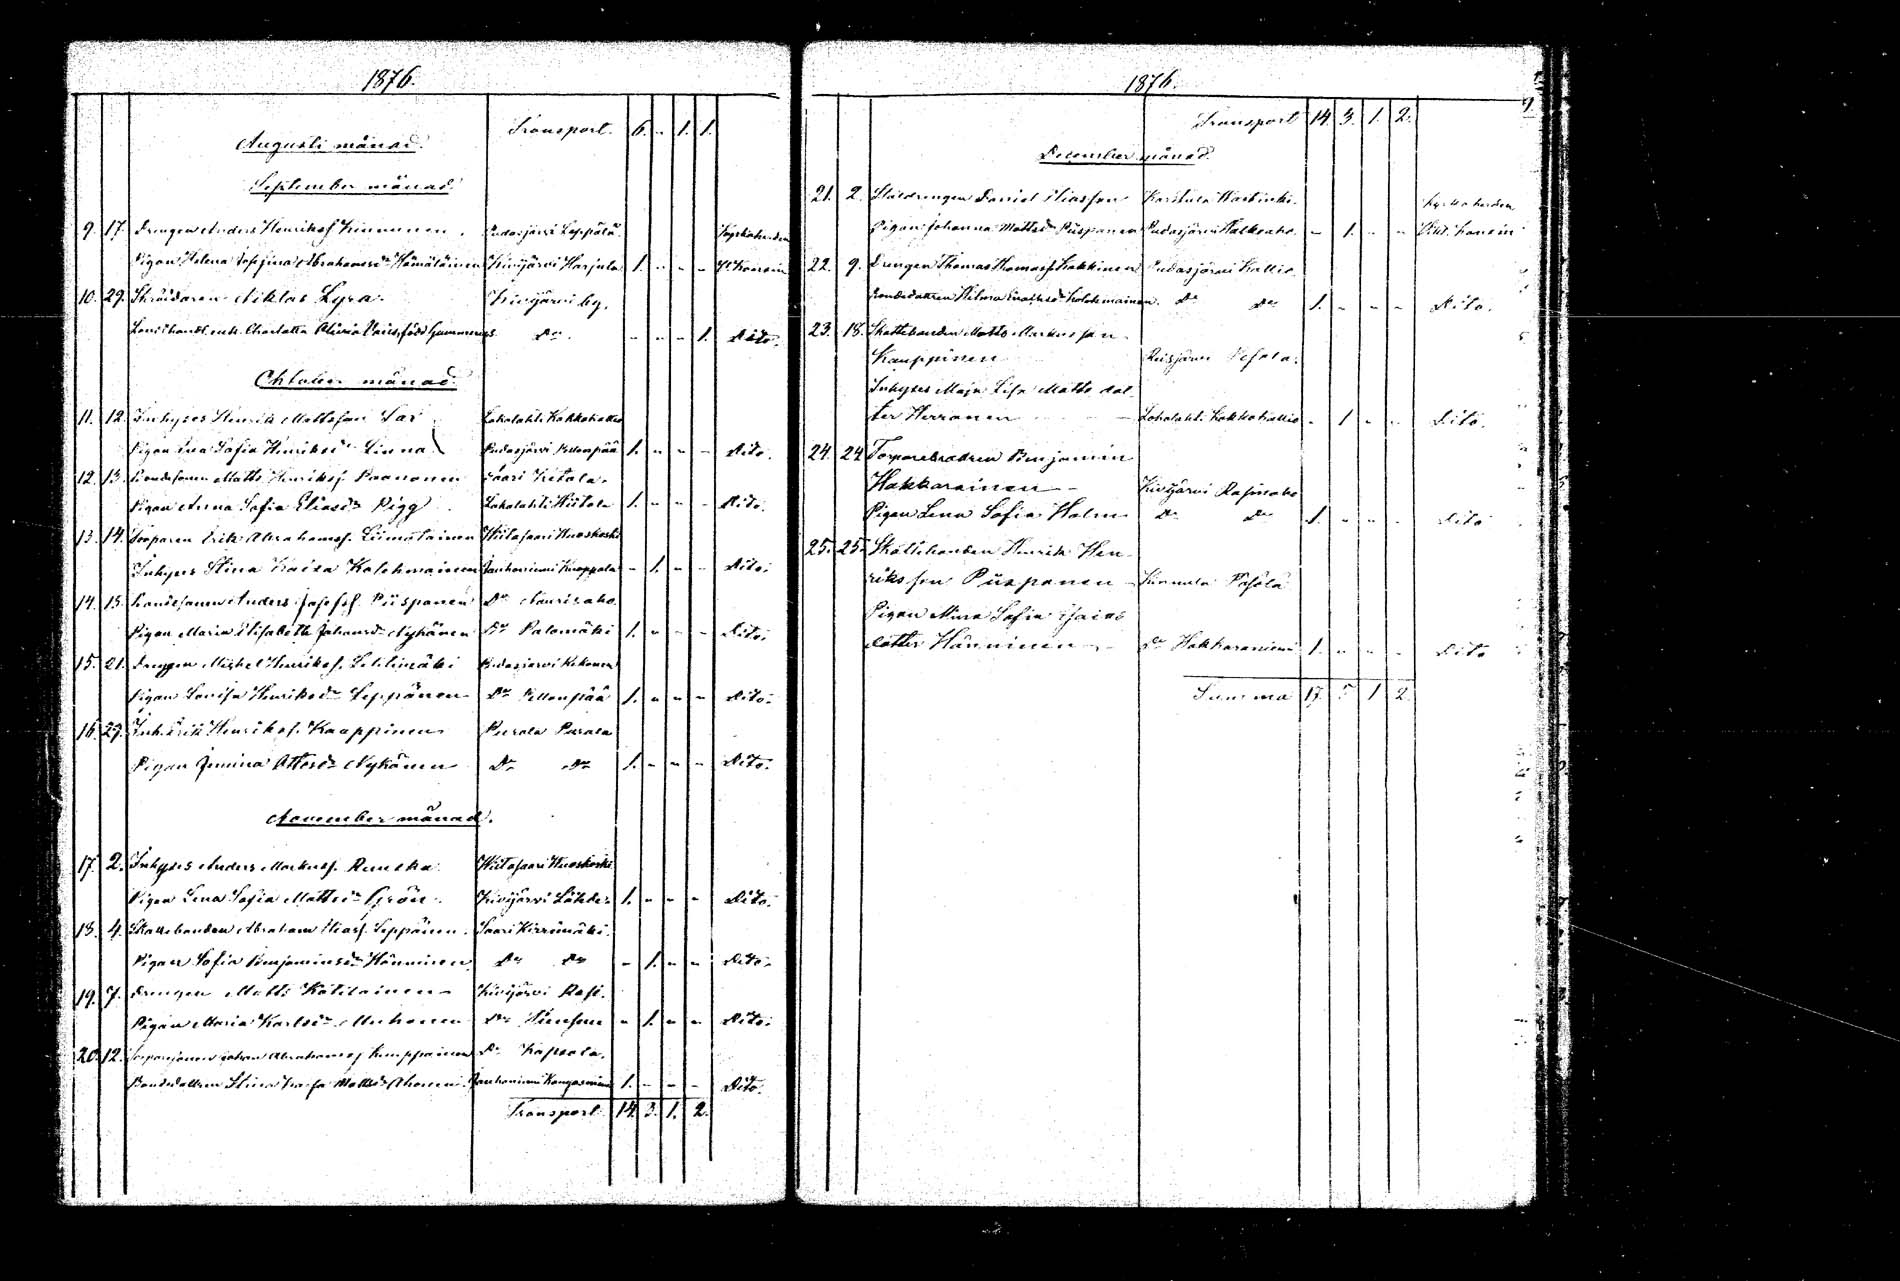 1876.
Transport. 6. - 1. 1.
Augusti månad.
September månad.
9. 17. Drengen Anders Henrikss. Kinnunen. Pudasjärvi Leppälä. Kyrkoherden
Pigan Helena Josefina Abrahamsdr Hämäläinen Kivijärvi Harjula 1. - - -
10. 29. Skräddaren Niklas Lyra. Kivijärvi by.
Charlotta Olivia född Gummerus Do. - - - 1. Dito.
Oktober månad.
11. 12. Inhyses Henrik Mattsson Lokalahti Kokkokallio
Pigan Lena Sofia Henriksdr Linna Pudasjärvi Pellonpää 1. - - - Dito.
12. 13. Bondesonen Matts Henrikss. Paananen Saari Ketola.
Pigan Anna Sofia Eliasdr Pigg Lokalahti Hiitola 1. - - - Dito.
13. 14. Torparen Erik Abrahamss. Liimatainen Wiitasaari Huoskoski
Inhyses Stina Kaisa Kolehmainen Jauhoniemi - 1. - - Dito.
14. 15. Bondesonen Anders Josefss. Piispanen Do Naurisaho
Pigan Maria Elisabeth Johansdr Nykänen Do Palomäki 1. - - - Dito.
15. 21. Drengen Mickel Henrikss. Pudasjärvi
Pigan Lovisa Henriksdr Leppänen Do Pellonpää 1. - - - Dito.
16. 29. Inh. Erik Henrikss. Kauppinen Purala Purala
Pigan Attosdr Nykänen Do Do 1. - - - Dito.
November månad.
17. 2. Inhyses Anders Markuss. Wiitasaari Huoskoski
Pigan Lena Sofia Mattsdr Grön. Kivijärvi Lähde. 1. - - - Dito.
18. 4. Skattebonden Abraham Eliass. Leppänen. Saari Kirrimäki.
Pigan Sofia Benjaminsdr Hänninen Do Do - 1. - - Dito.
19. 7. Drengen Matts Kotilainen Kivijärvi
Pigan Maria Karlsdr Muhonen Do - 1. - - Dito.
20. 12. Torparsonen Johan Abrahamss. Kumppainen Do
Bondedottren Stina Mattsdr Ahonen. Jauhoniemi Kangasniemi 1. - - - Dito.
Transport. 14. 3. 1. 2.
1876.
Transport 14. 3. 1. 2.
December månad.
21. 2. Daniel Eliasson Karstula Kyrkoherden
Pigan Johanna Mattsdr Piispanen Pudasjärvi - 1. - -
22. 9. Drengen Thomas Thomass. Hakkinen Pudasjärvi Kallio.
Bondedottren Hilma Kolehmainen. Do Do 1. - - - Dito.
23. 18. Skattebonden Matts Markusson
Kauppinen
Inhyses Maja Lisa Matts dot-
ter Herranen Lokalahti Kokkokallio - 1 - - Dito.
24. 24 Benjamin
Hakkarainen Kivijärvi
Pigan Lena Sofia Holm Do Do 1. - - - Dito
25. 25. Skattebonden Henrik Hen-
riksson Piispanen Kinnula
Pigan Mina Sofia Esaias
dotter Hänninen Do Hakkaraniemi 1. - - - Dito
Summa 17. 5 1 2.